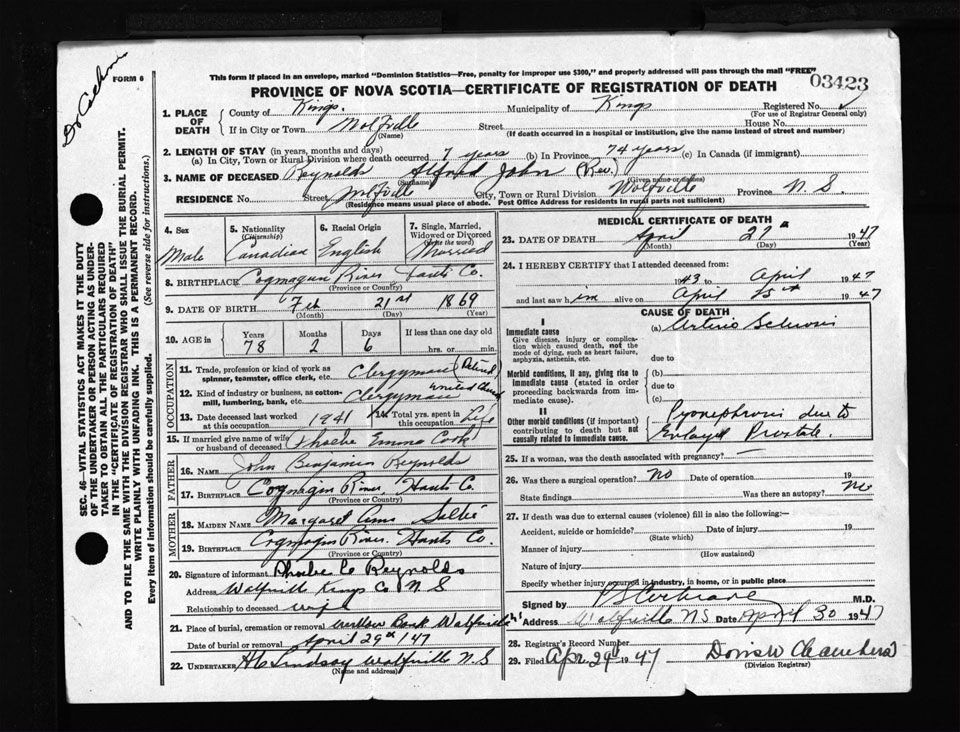 Dr Cochrane
FORM 6
This form if placed in an envelope, marked "Dominion Statistics—Free, penalty for improper use $300," and properly addressed will pass through the mail "FREE"
PROVINCE OF NOVA SCOTIA—CERTIFICATE OF REGISTRATION OF DEATH
03423
1. PLACE OF DEATH
County of Kings. Municipality of Kings Registered No.
(For use of Registrar General only)
If in City or Town Wolfville Street House No.
(Name) (If death occurred in a hospital or institution, give the name instead of street and number)
2. LENGTH OF STAY (in years, months and days)
(a) In City, Town or Rural Division where death occurred 7 years (b) In Province 74 years (c) In Canada (if immigrant)
3. NAME OF DECEASED Reynolds Alfred John (Rev.)
(Surname) (Given name or names)
RESIDENCE No. Street Wolfville City, Town or Rural Division Wolfville Province N.S.
(Residence means usual place of abode. Post Office Address for residents in rural parts not sufficient)
4. Sex
Male
5. Nationality
(Citizenship)
Canadian
6. Racial Origin
English
7. Single, Married, Widowed or Divorced
(write the word)
Married
8. BIRTHPLACE Cogmagun River Hants Co.
(Province or Country)
9. DATE OF BIRTH Feb 21st 1869
(Month) (Day) (Year)
10. AGE in
Years Months Days If less than one day old
78 2 6 hrs. or min.
OCCUPATION
11. Trade, profession or kind of work as spinner, teamster, office clerk, etc. Clergyman (Retired)
12. Kind of industry or business, as cotton-mill, lumbering, bank, etc. Clergyman United Church
13. Date deceased last worked at this occupation 1941 14. Total yrs. spent in this occupation Life
15. If married give name of wife or husband of deceased Phoebe Emma Cook
FATHER
16. NAME John Benjamin Reynolds
17. BIRTHPLACE Cogmagun River, Hants Co.
(Province or Country)
MOTHER
18. MAIDEN NAME Margaret Ann
19. BIRTHPLACE Cogmagun River. Hants Co.
(Province or Country)
20. Signature of informant Phoebe E Reynolds
Address Wolfville Kings Co N S
Relationship to deceased wife
21. Place of burial, cremation or removal Willow Bank Wolfville
Date of burial or removal April 29th /47
22. UNDERTAKER H C Lindsay Wolfville N.S
(Name and address)
MEDICAL CERTIFICATE OF DEATH
23. DATE OF DEATH April 27th 1947
(Month) (Day) (Year)
24. I HEREBY CERTIFY that I attended deceased from:
1943 to April 1947
and last saw him alive on April 25th 1947
CAUSE OF DEATH
I
Immediate cause
Give disease, injury or complication which caused death, not the mode of dying, such as heart failure, asphyxia, asthenia, etc.
(a) Arterio Sclerosis
due to
Morbid conditions, if any, giving rise to immediate cause (stated in order proceeding backwards from immediate cause).
(b)
due to
(c)
II
Other morbid conditions (if important) contributing to death but not causally related to immediate cause.
Pyonephrosis due to
Enlarged Prostate.
25. If a woman, was the death associated with pregnancy? —
26. Was there a surgical operation? No Date of operation 19
State findings Was there an autopsy? No
27. If death was due to external causes (violence) fill in also the following:—
Accident, suicide or homicide? Date of injury 19
(State which)
Manner of injury
(How sustained)
Nature of injury
Specify whether injury occurred in industry, in home, or in public place
Signed by Cochrane M.D.
Address Wolfville N.S. Date April 30 1947
28. Registrar's Record Number
29. Filed Apr. 29 1947
(Division Registrar)
SEC. 46—VITAL STATISTICS ACT MAKES IT THE DUTY
OF THE UNDERTAKER OR PERSON ACTING AS UNDER-
TAKER TO OBTAIN ALL THE PARTICULARS REQUIRED
IN THE "CERTIFICATE OF REGISTRATION OF DEATH"
AND TO FILE THE SAME WITH THE DIVISION REGISTRAR WHO SHALL ISSUE THE BURIAL PERMIT.
WRITE PLAINLY WITH UNFADING INK. THIS IS A PERMANENT RECORD.
Every item of information should be carefully supplied. (See reverse side for instructions).